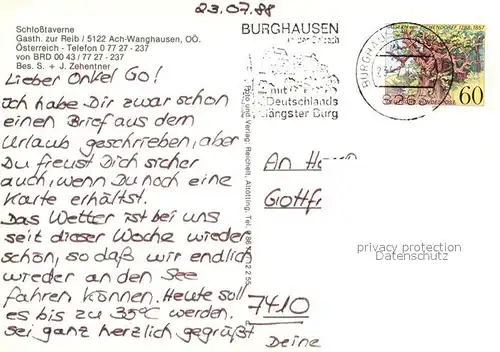 23.07.88
Schloßtaverne
Gasth. zur Reib / 5122 Ach-Wanghausen, OÖ.
Österreich - Telefon 0 77 27 - 237
von BRD 00 43 / 77 27 - 237
Bes. S. + J. Zehentner
Lieber Onkel Go!
Ich habe Dir zwar schon
einen Brief aus dem
Urlaub geschrieben, aber
Du freust Dich sicher
auch, wenn Du noch eine
Karte erhältst.
Das Wetter ist bei uns
seit dieser Woche wieder
schön, so daß wir endlich
wieder an den See
fahren können. Heute soll
es bis zu 35°C werden.
Sei ganz herzlich gegrüßt
Deine
BURGHAUSEN
mit
Deutschlands
längster Burg
60
und Verlag: Reichelt, Altötting, Tel.
An
Gottf
7410
privacy protection
Datenschutz